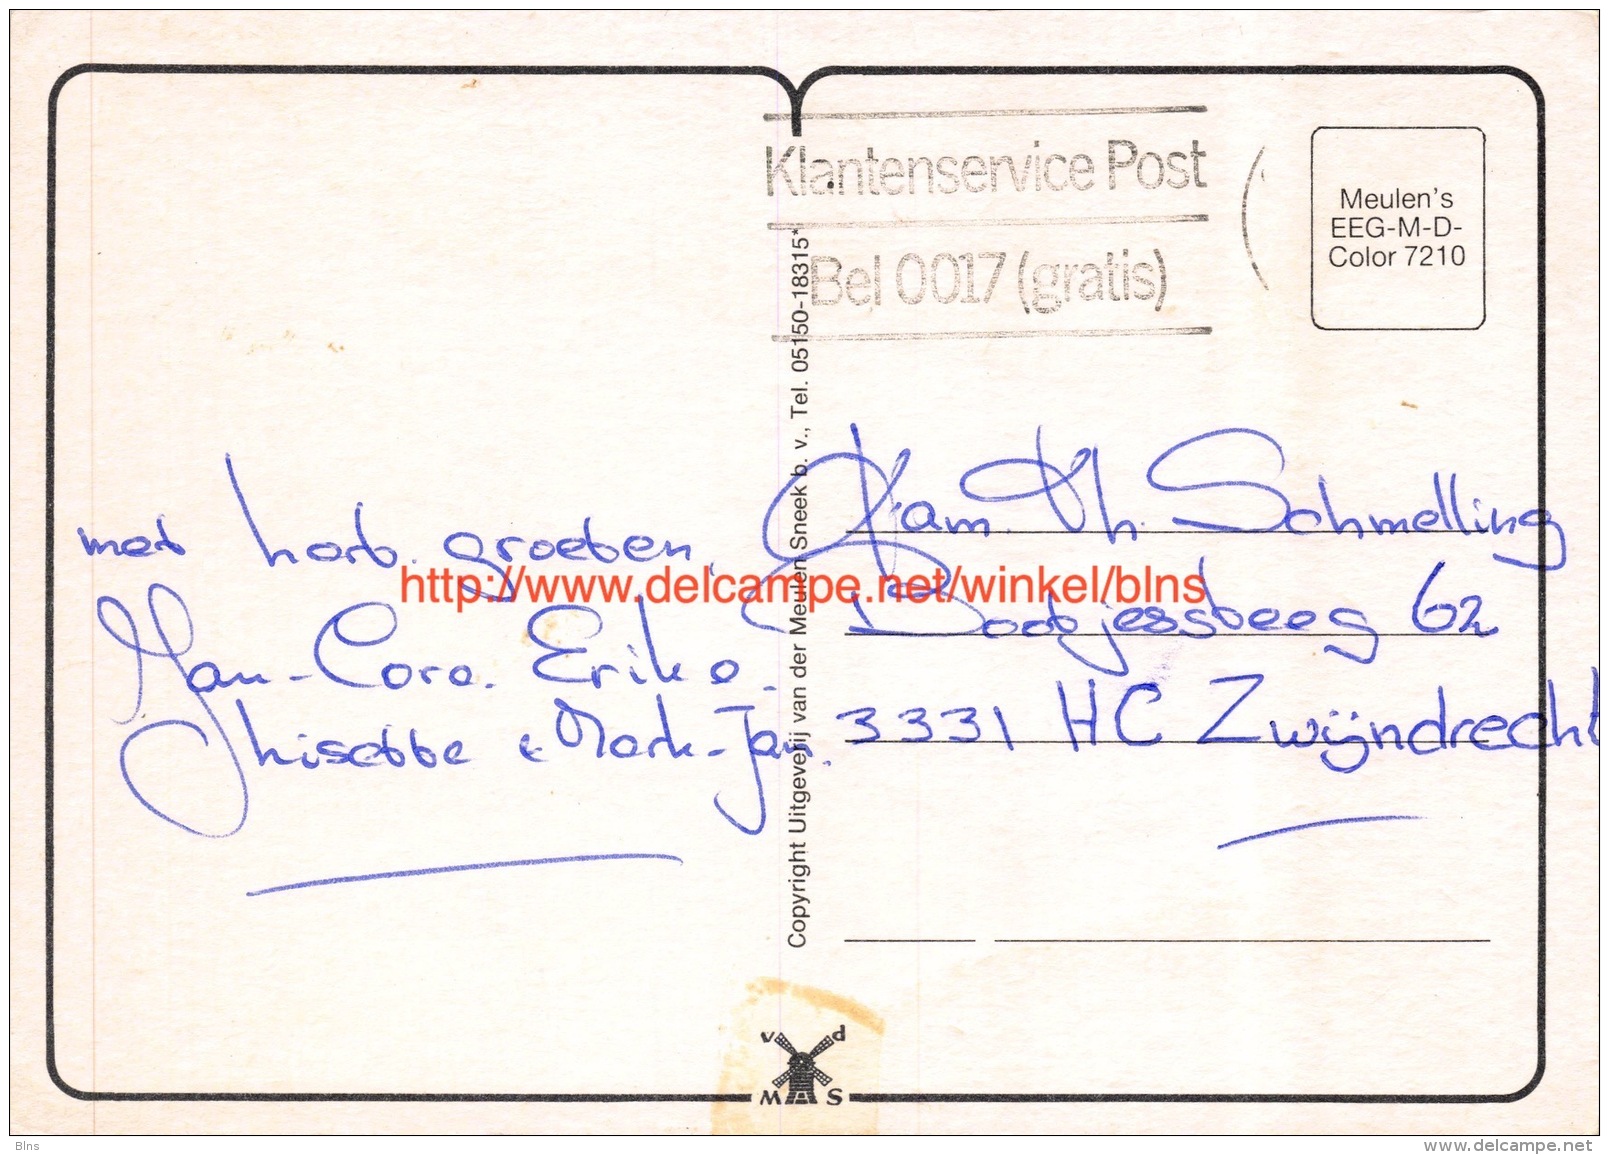 Klantenservice Post
Bel 0017 (gratis)
Meulen's
EEG-M-D-
Color 7210
Copyright Uitgeverij van der Meulen Sneek b. v., Tel. 05150-18315*
met hart. groeten.
Jan - Cora. Erik e.
Mark - Jan.
Fam. Th. Schmelling
62
3331 HC Zwijndrecht
http://www.delcampe.net/winkel/blns
v d
M S
Blns
www.delcampe.net